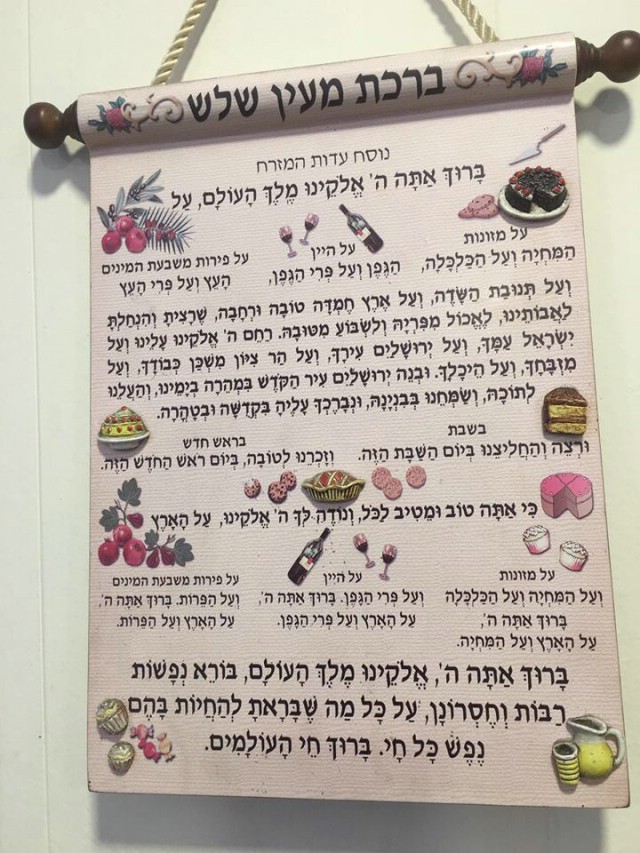 ברכת מעין שלש
נוסח עדות המזרח
בָּרוּךְ אַתָּה ה' אֱלֹקֵינוּ מֶלֶךְ הָעוֹלָם, עַל
על מזונות
הַמִּחְיָה וְעַל הַכַּלְכָּלָה,
על היין
הַגֶּפֶן וְעַל פְּרִי הַגֶּפֶן,
על פירות משבעת המינים
הָעֵץ וְעַל פְּרִי הָעֵץ
וְעַל תְּנוּבַת הַשָּׂדֶה, וְעַל אֶרֶץ חֶמְדָּה טוֹבָה וּרְחָבָה, שֶׁרָצִיתָ וְהִנְחַלְתָּ
לַאֲבוֹתֵינוּ, לֶאֱכוֹל מִפִּרְיָהּ וְלִשְׂבּוֹעַ מִטּוּבָהּ. רַחֵם ה' אֱלֹקֵינוּ עָלֵינוּ וְעַל
יִשְׂרָאֵל עַמָּךְ, וְעַל יְרוּשָׁלַיִם עִירָךְ, וְעַל הַר צִיּוֹן מִשְׁכַּן כְּבוֹדָךְ, וְעַל
מִזְבָּחָךְ, וְעַל הֵיכָלָךְ. וּבְנֵה יְרוּשָׁלַיִם עִיר הַקֹּדֶשׁ בִּמְהֵרָה בְיָמֵינוּ, וְהַעֲלֵנוּ
לְתוֹכָהּ, וְשַׂמְּחֵנוּ בְּבִנְיָנָהּ, וּנְבָרֶכְךָ עָלֶיהָ בִּקְדֻשָּׁה וּבְטָהֳרָה.
בשבת
וּרְצֵה וְהַחֲלִיצֵנוּ בְּיוֹם הַשַּׁבָּת הַזֶּה.
בראש חדש
וְזָכְרֵנוּ לְטוֹבָה, בְּיוֹם רֹאשׁ הַחֹדֶשׁ הַזֶּה.
כִּי אַתָּה טוֹב וּמֵטִיב לַכֹּל, וְנוֹדֶה לְּךָ ה' אֱלֹקֵינוּ, עַל הָאָרֶץ
על מזונות
וְעַל הַמִּחְיָה וְעַל הַכַּלְכָּלָה
בָּרוּךְ אַתָּה ה',
עַל הָאָרֶץ וְעַל הַמִּחְיָה.
על היין
וְעַל פְּרִי הַגֶּפֶן. בָּרוּךְ אַתָּה ה',
עַל הָאָרֶץ וְעַל פְּרִי הַגֶּפֶן.
על פירות משבעת המינים
וְעַל הַפֵּרוֹת. בָּרוּךְ אַתָּה ה',
עַל הָאָרֶץ וְעַל הַפֵּרוֹת.
בָּרוּךְ אַתָּה ה', אֱלֹקֵינוּ מֶלֶךְ הָעוֹלָם, בּוֹרֵא נְפָשׁוֹת
רַבּוֹת וְחֶסְרוֹנָן, עַל כָּל מַה שֶּׁבָּרָאתָ לְהַחֲיוֹת בָּהֶם
נֶפֶשׁ כָּל חָי. בָּרוּךְ חֵי הָעוֹלָמִים.